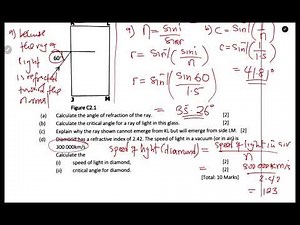 c) because
the ray of
light
is refracted
toward the
normal
60°
J
M
Figure C2.1
a) n = sin i
sin r
r = sin⁻¹(sin i
n)
r = sin⁻¹(sin 60
1.5)
r = 35.26°
b) C = sin⁻¹(1
n)
c = sin⁻¹(1
1.5)
41.8°
(a) Calculate the angle of refraction of the ray. [2]
(b) Calculate the critical angle for a ray of light in this glass. [2]
(c) Explain why the ray shown cannot emerge from KL but will emerge from side LM. [2]
(d) Diamond has a refraction index of 2.42. The speed of light in a vacuum (or in air) is
300 000km/s
Calculate the
(i) speed of light in diamond. [2]
(ii) critical angle for diamond. [2]
[Total: 10 Marks]
speed of light (diamond) = speed of light in air
n
= 300 000km/s
2.42
= 123